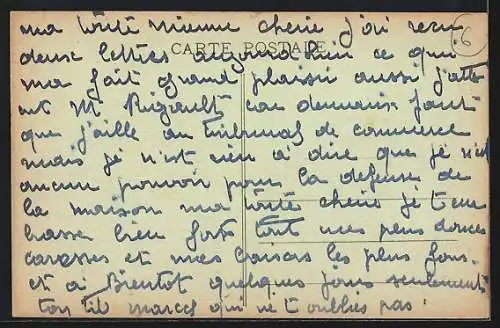 ma toute mienne cherie j'ai recu
deux lettres aujourd'hui ce qui
CARTE POSTALE
6
ma fait grand plaisir aussi j'atte
nt M Rigault car demain faut
que j'aille au tribunal de commerce
mais je n'est rien a dire que je n'est
aucun pouvoir pour la defense de
la maison ma toute cherie je t'em
brasse bien fort tout mes plus douces
caresses et mes baisers les plus fous
et a Bientot quelques jours seulement
ton tit marcel qui ne t'oublies pas.